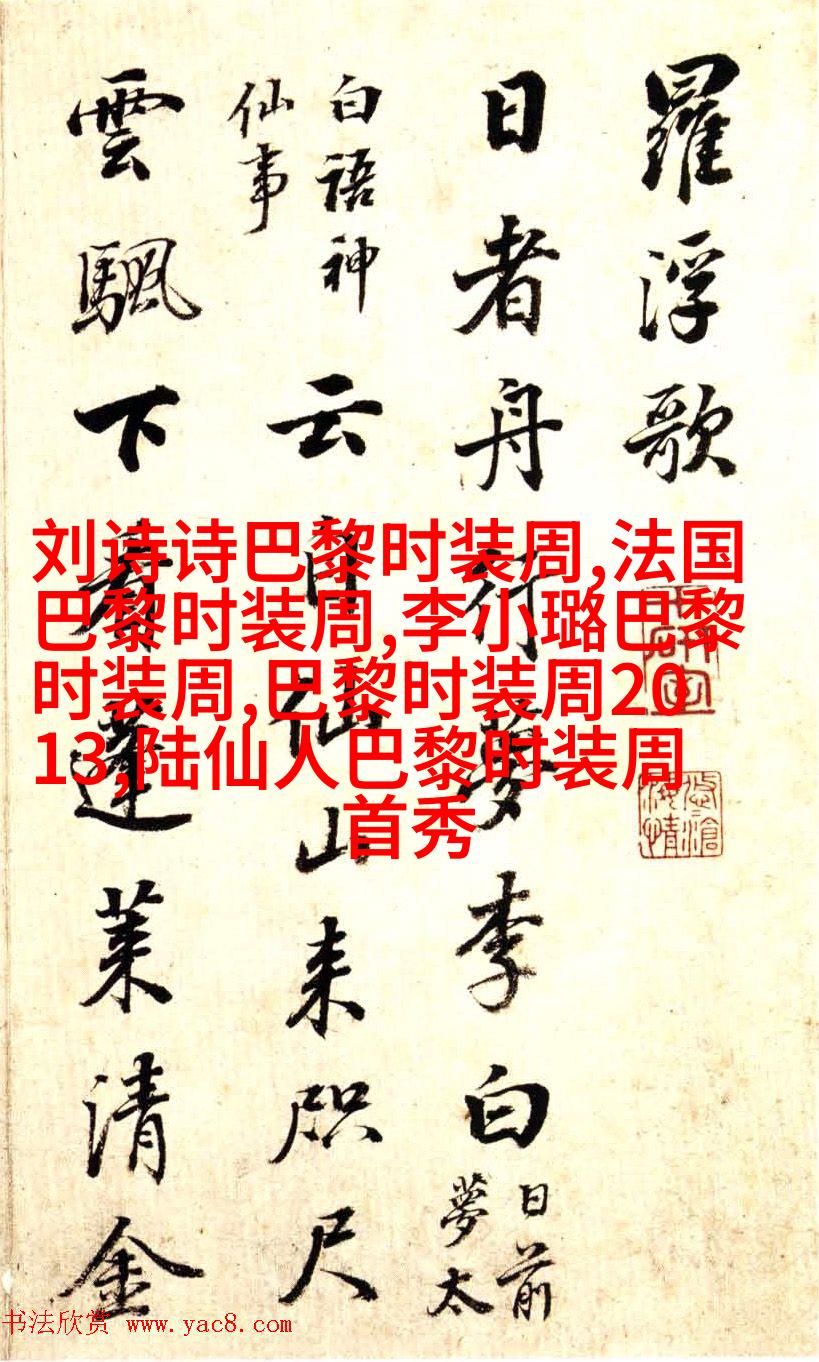 羅浮歌
日者舟行夢李白
日前
夢太
白語神
仙事
云自仙山来咫尺
雲颿下蓬莱清金
刘诗诗巴黎时装周,法国
巴黎时装周,李小璐巴黎
时装周,巴黎时装周20
13,陆仙人巴黎时装周
首秀
书法欣赏 www.yac8.com